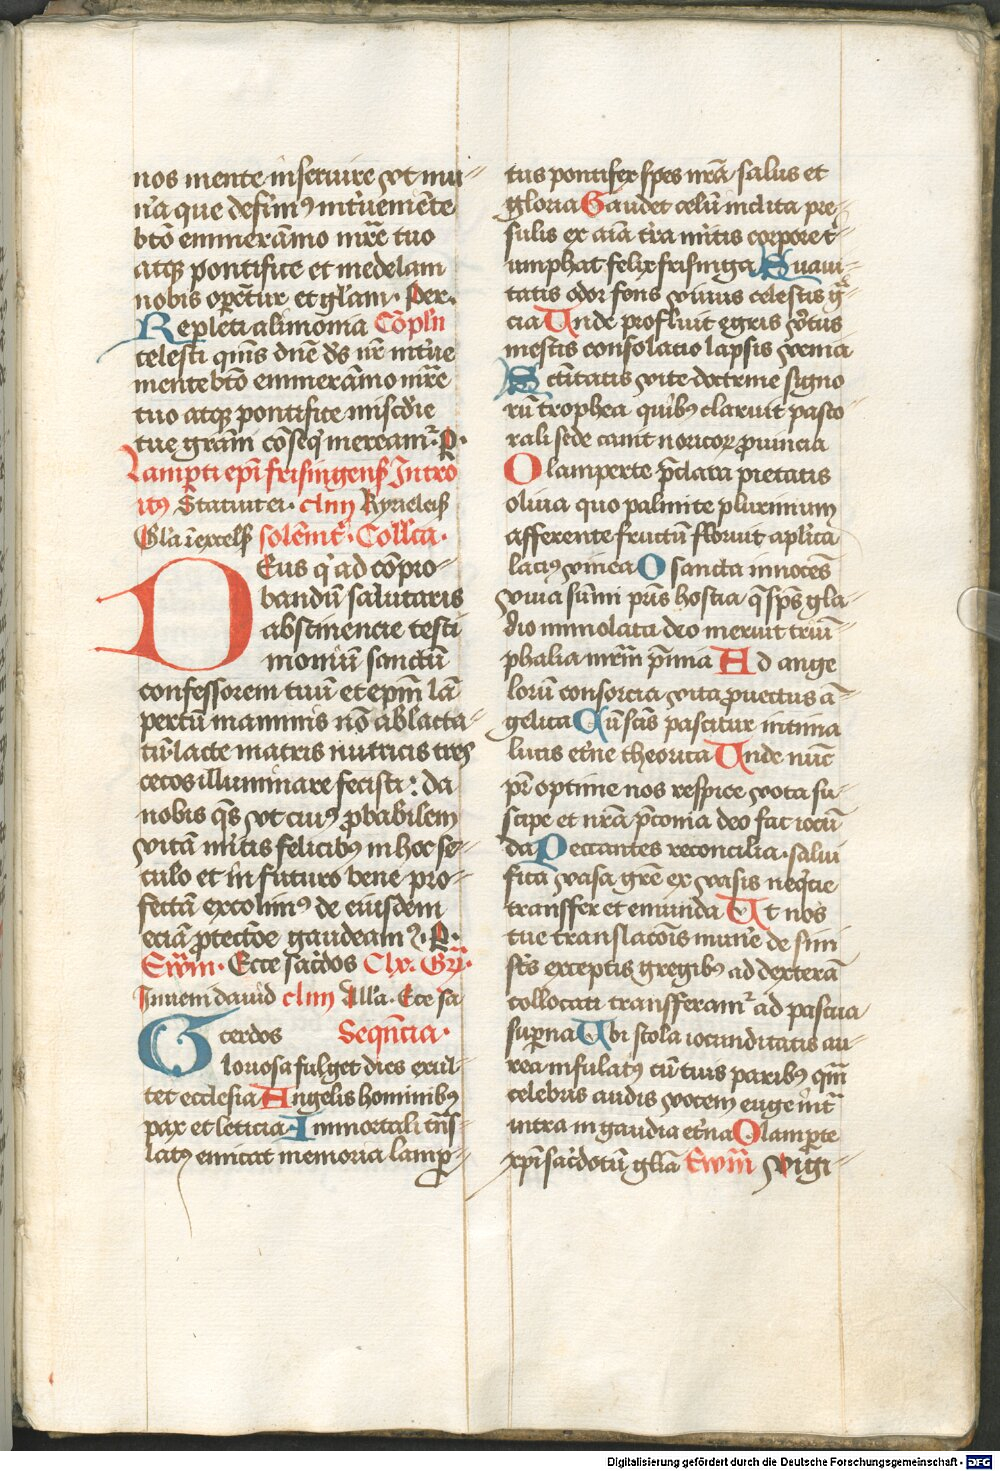 nos mente inseruire vt mu
n'a que defim9 int'ueniẽte
btõ emmerãmo mr̃e tuo
atq3 pontifice et medelam
nobis opeñtur et gl'am · Per ·
Repleti alimonia Cõpl'n
celesti quims dnẽ d's nr̃e int'ue
mente btõ emmerãmo mr̃e
tuo atq3 pontifice misc'die
tuę gram cõseq' meream̃ · P ·
Lamp'ti ep̃i frisingens̃ Intro
itus Statuit ei · clm Kyrieleis
Gl'a ĩ excels̃ solẽnit' · Coll'ca ·
Deus q' ad cõpro
bandũ salutaris
abstinencie testi
moniũ sanctũ
confessorem tuũ et ep̃m lã
pertũ mammis nõ ablacta
tũ lacte matris nutricis tres
cecos illuminare fecisti : da
nobis q̃s vt cui9 ꝓbabilem
vitã m'itis felicib9 in hoc se
culo et in futuro bene pro
fectã excolim9 de eiusdem
eciã ꝓtectõe gaudeam9 · P ·
Ewm̃ · Ecce sac'dos Clx. Gr̃ ·
Inueni dauid clm All'a · Ecce sa
cerdos Seqñtia ·
Gloriosa fulget dies exul
tet ecclesia Angelis hominib9
pax et leticia Immortali trñs
lat9 emicat memoria lamp
tus pontifex spes nr̃a salus et
gloria Gaudet celũ inclita pre
sulis ex aĩa t'ra m'itis corpore t'
umphat felix frisinga Suaui
tatis odor fons viuus celestis gr̃
cia Unde profluit egris v'tus
mestis consolacio lapsis venia
Sc̃titatis vite doctrine signo
rũ trophea quib9 claruit pasto
rali sede canit noricoꝝ ꝓuincia
O lamperte p̃clara pietatis
oliua quo palmite plurimum
afferente fructũ floruit apl'ica
laci9 vinea O sancta innocẽs
viua sũmi pr̃is hostia q̃ sp̃s gla
dio immolata deo meruit triũ
phalia mr̃im p̃mia Ad ange
lorũ consorcia vita ꝓuectus ã
gelica Cũ sc̃is pascitur intima
lucis et'ne theorica Unde nũc
pr̃ optime nos respice vota su
scipe et nr̃a p̃conia deo fac iocũ
da Peccantes reconcilia · salui
fica vasa grẽ ex vasis neq'cie
transfer et emũda Ut nos
tue translacõis mun'e de sini
st's exceptis gregib9 ad dexterã
collocati transferam̃ ad pascua
sup̃na Ubi stola iocunditatis au
rea infulat9 cũ tuis parib9 qm̃
celebris audis vocem euge int'
intra in gaudia et'na O lamperte
xp̃i sac'dotũ gl'ia Ewm̃ Vigi
Digitalisierung gefördert durch die Deutsche Forschungsgemeinschaft - DFG